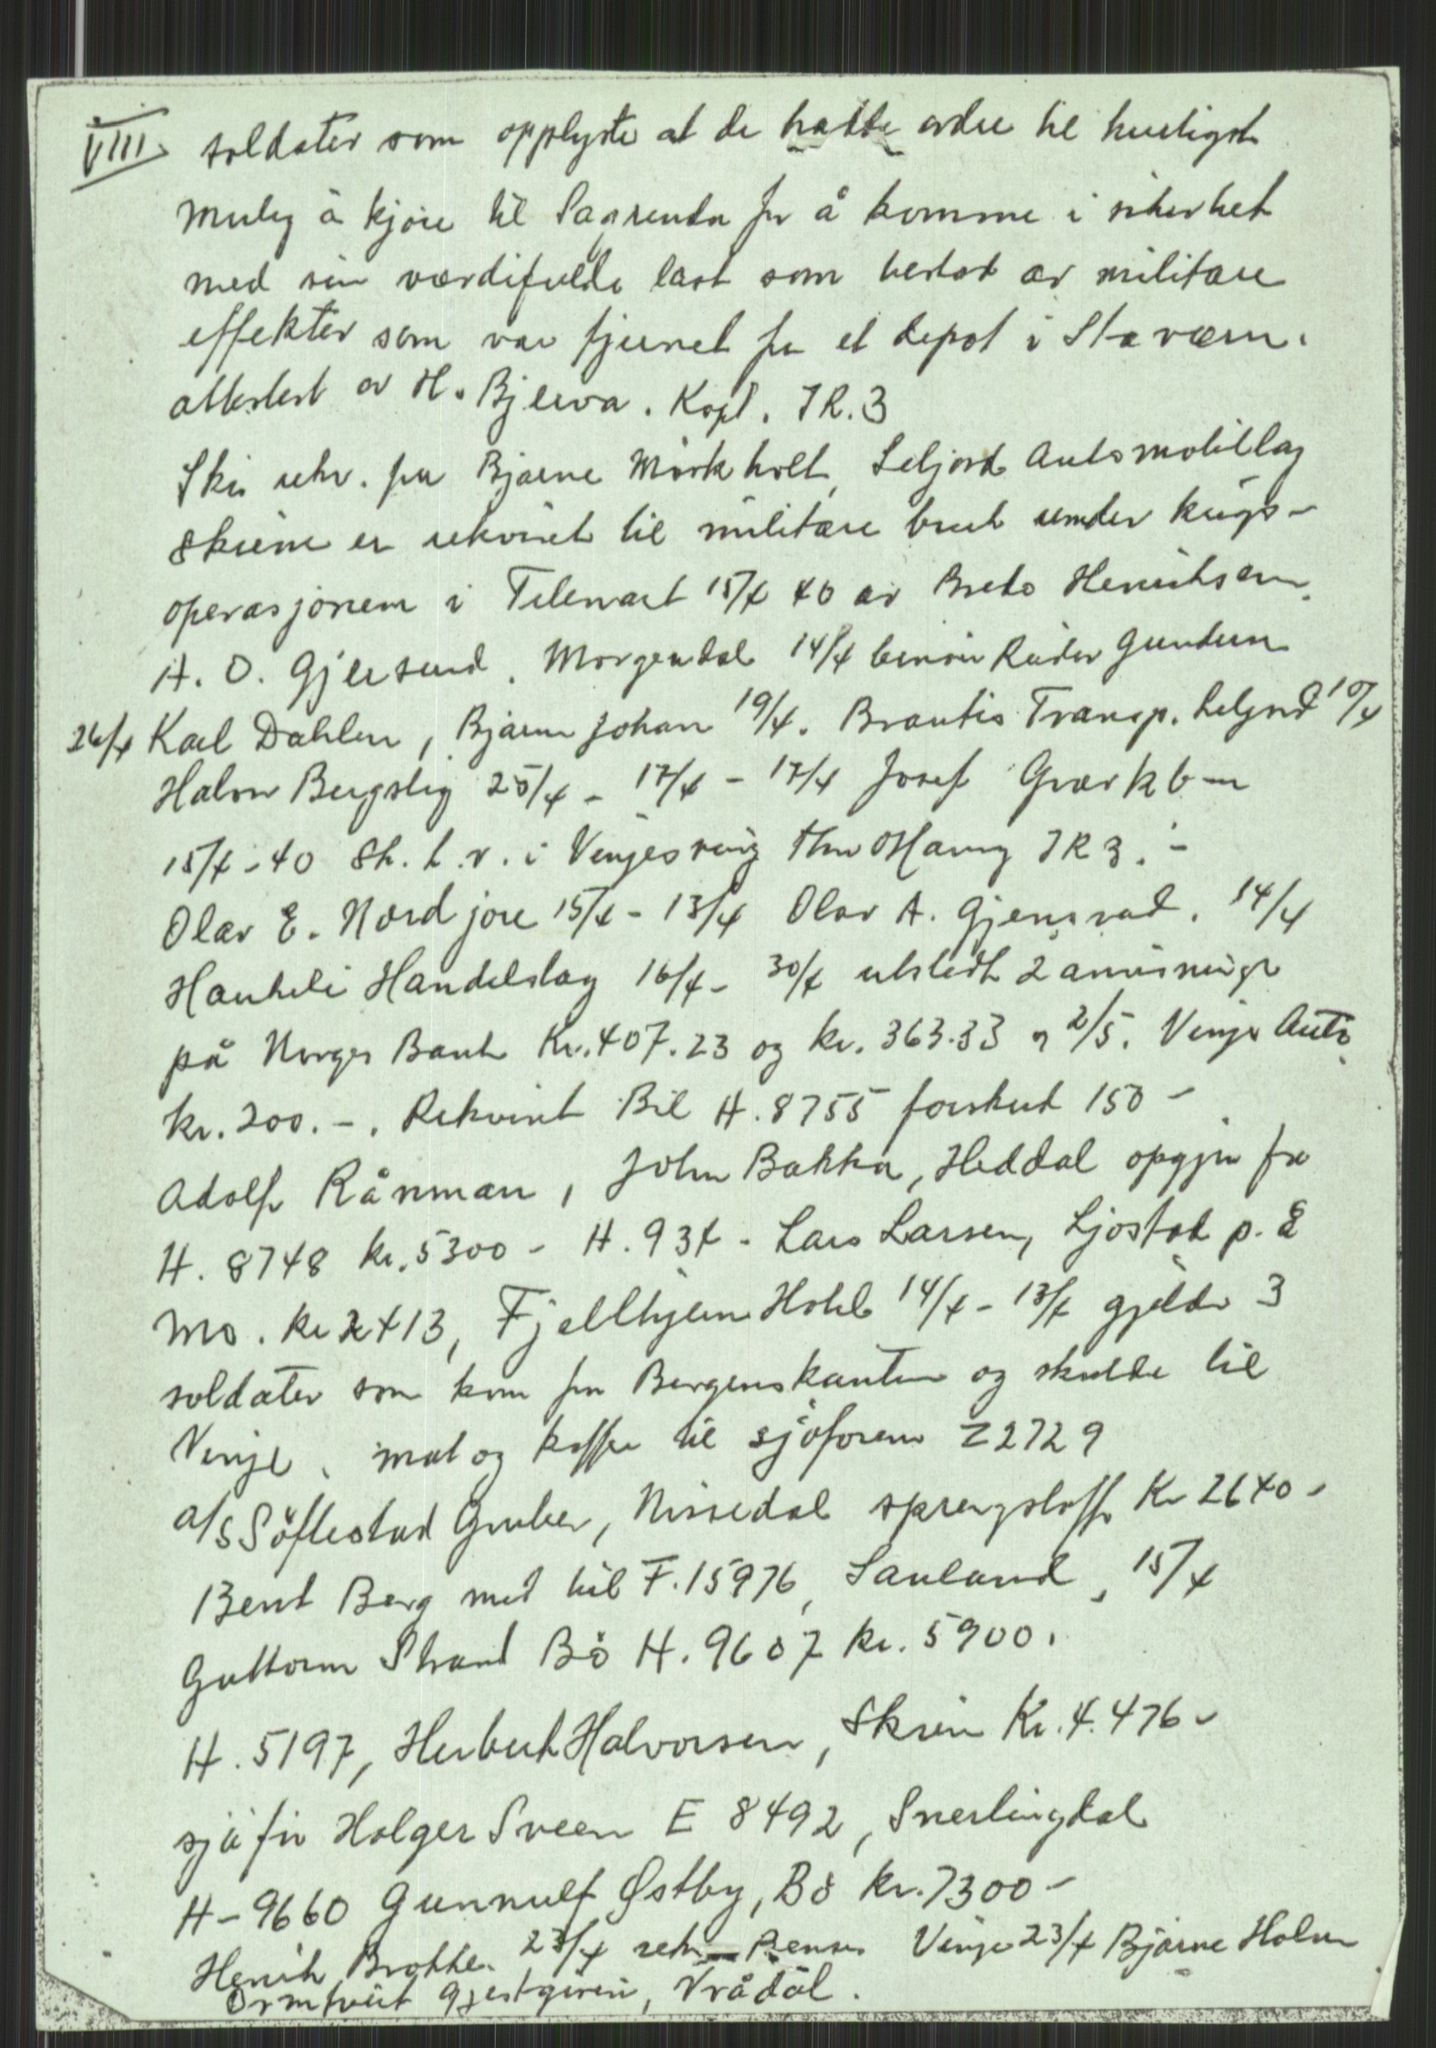 VIII. soldater som opplyste at de hadde ordre til hurtigst
mulig å kjøre til Sagrenda for å komme i sikerhet
med sin værdifulde last som bestod av militære
effekter som var fjernet fra et depot i Staværn.
attestert av H. Bjerva. Kapt. IR. 3
Ski rekv. fra Bjarne Mörkholt, Seljord Automobillag
Skiene er rekvirert til militære bruk under krigs-
operasjonem i Telemark 15/4 40 av Henriksen.
H. O. Gjersund. Morgendal 14/4 bensin Reidar
26/4 Karl Dahlen, Bjarne Johan 19/4. Transp. Seljord 10/4
Halvor Bergslig 25/4 - 17/4 - 17/4 Josef
15/4-40 i IR 3. -
Olav E. Nordjore 15/4 - 13/4 Olav A. 14/4
Haukeli Handelslag 16/4 - 30/4 utstedt 2 anvisninger
på Norges Bank Kr. 407.23 og kr. 363.33 og 2/5. Vinje Auto
kr. 200.-. Rekvirert Bil H. 8755 forskud 150 -
Adolf Rånman, John Bakka, Heddal opgjør fra
H. 8748 kr. 5300 - H. 934 - Lars Larsen, Ljostad p. å
Mo. kr 2413, Fjellhjem Hotel 14/4 - 13/4 gjelder 3
soldater som kom fra Bergenskanten og skulde til
Vinje. mat og kaffe til sjåførem Z2729
A/S Söftestad Gruber, Nissedal sprengstoff Kr 2640 -
Bent Berg med bil F. 15976, Sauland, 15/4
Guttorm Strand Bö H. 9607 kr. 5900.
H. 5197, Herbert Halvorsen, Skien Kr. 4.476 -
sjåfør Holger Sveen E 8492, Snertingdal
H - 9660 Gunnulf Østby, Bö kr. 7300 -
Henrik Brokke. 23/4 rekv Vinje 23/4 Bjarne Holm
Ormtveit Gjestgiveri, Vrådal.